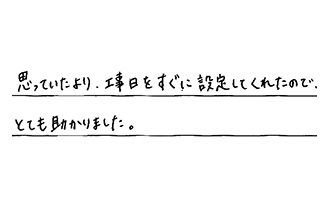 思っていたより、工事日をすぐに設定してくれたので、
とても助かりました。